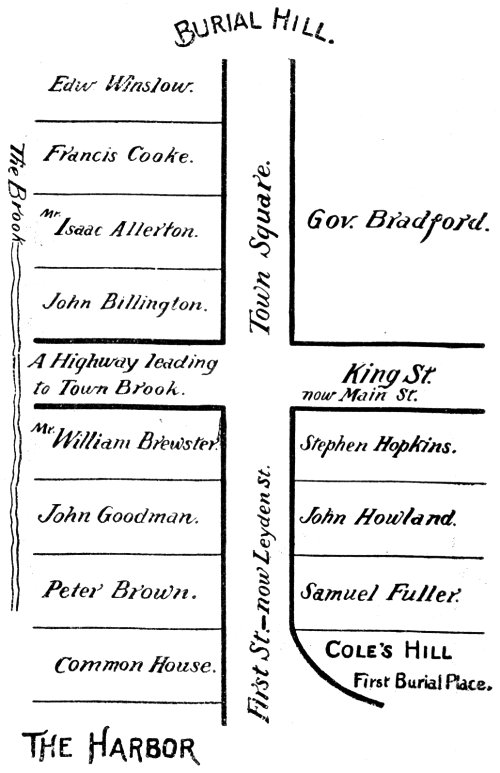 BURIAL HILL.
Edw Winslow.
Francis Cooke.
Mr. Isaac Allerton.
John Billington.
The Brook
Town Square.
Gov. Bradford.
A Highway leading
to Town Brook.
King St.
now Main St.
Mr. William Brewster.
John Goodman.
Peter Brown.
Common House.
First St.–now Leyden St.
Stephen Hopkins.
John Howland.
Samuel Fuller.
COLE'S HILL
First Burial Place.
THE HARBOR